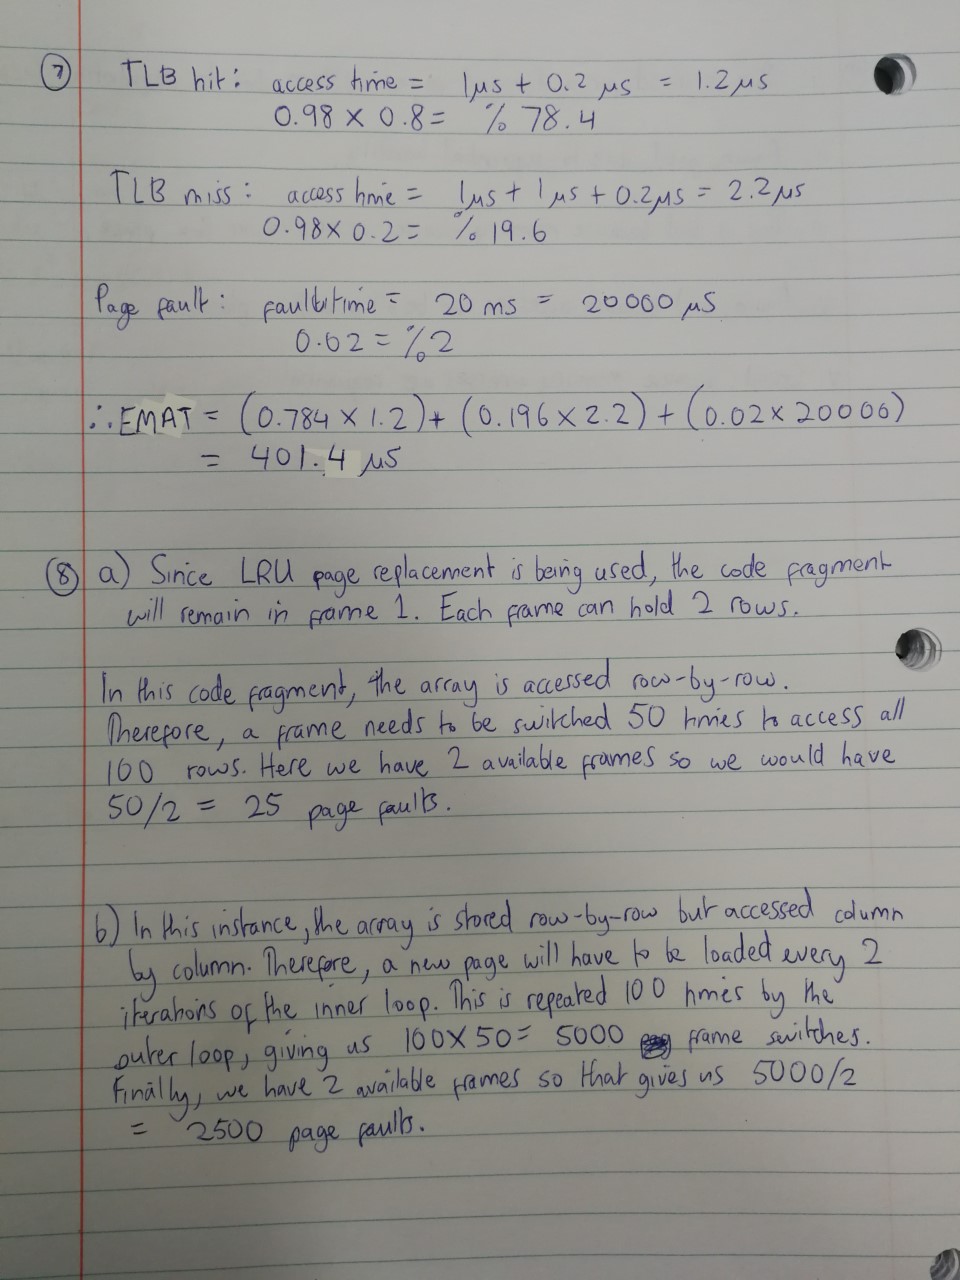 7 TLB hit: access time = 1μs + 0.2 μs = 1.2 μs
0.98 × 0.8 = % 78.4
TLB miss: access time = 1μs + 1μs + 0.2μs = 2.2 μs
0.98 × 0.2 = % 19.6
Page fault: fault time = 20 ms = 20000 μs
0.02 = % 2
∴ EMAT = (0.784 × 1.2) + (0.196 × 2.2) + (0.02 × 20000)
= 401.4 μs
8 a) Since LRU page replacement is being used, the code fragment
will remain in frame 1. Each frame can hold 2 rows.
In this code fragment, the array is accessed row-by-row.
Therefore, a frame needs to be switched 50 times to access all
100 rows. Here we have 2 available frames so we would have
50/2 = 25 page faults.
b) In this instance, the array is stored row-by-row but accessed column
by column. Therefore, a new page will have to be loaded every 2
iterations of the inner loop. This is repeated 100 times by the
outer loop, giving us 100 × 50 = 5000 frame switches.
Finally, we have 2 available frames so that gives us 5000/2
= 2500 page faults.